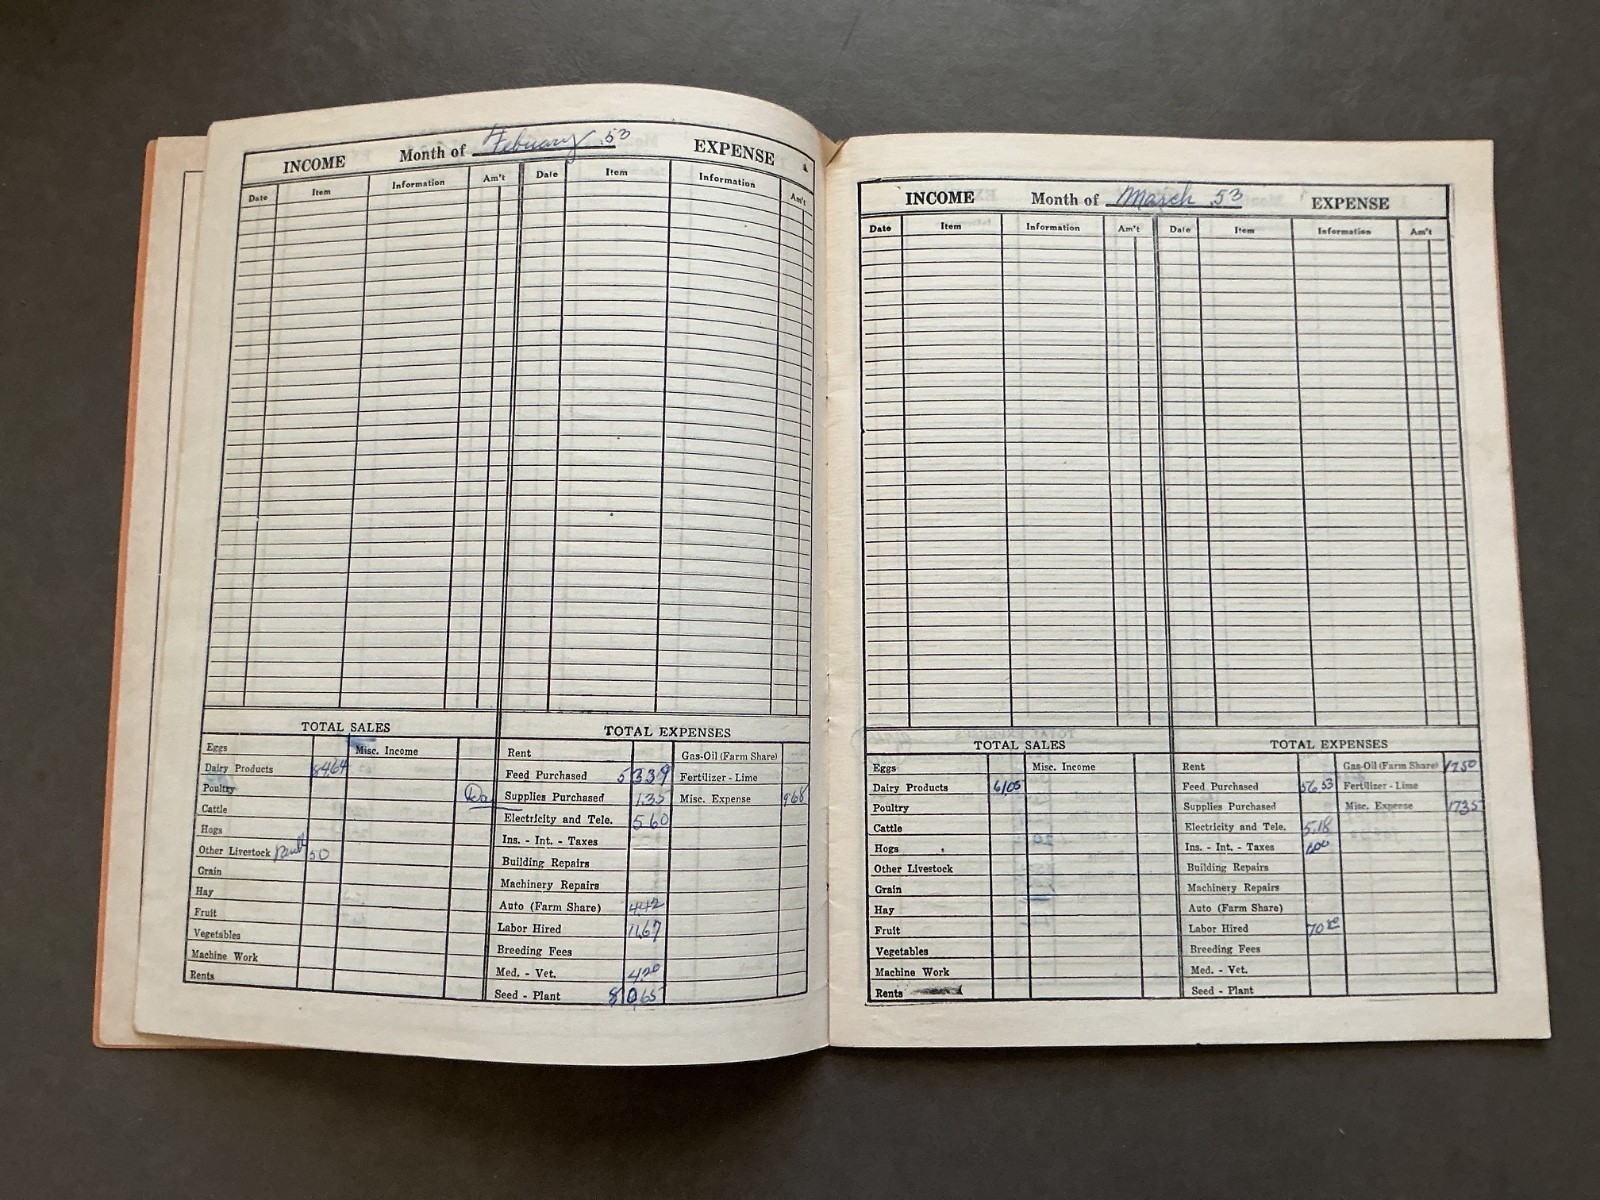 INCOME Month of Febuary 53 EXPENSE
Date Item Information Am't Date Item Information Am't
TOTAL SALES TOTAL EXPENSES
Eggs Misc. Income Rent Gas-Oil (Farm Share)
Dairy Products 8464 Feed Purchased 5339 Fertilizer - Lime
Poultry Supplies Purchased 1.35 Misc. Expense 968
Cattle Electricity and Tele. 560
Hogs Ins. - Int. - Taxes
Other Livestock 50 Building Repairs
Grain Machinery Repairs
Hay Auto (Farm Share) 442
Fruit Labor Hired 1167
Vegetables Breeding Fees
Machine Work Med. - Vet. 420
Rents Seed - Plant 8065
INCOME Month of March 53 EXPENSE
Date Item Information Am't Date Item Information Am't
TOTAL SALES TOTAL EXPENSES
Eggs Misc. Income Rent Gas-Oil (Farm Share) 1750
Dairy Products 6105 Feed Purchased 5653 Fertilizer - Lime
Poultry Supplies Purchased Misc. Expense 1735
Cattle Electricity and Tele. 5.18
Hogs Ins. - Int. - Taxes
Other Livestock Building Repairs
Grain Machinery Repairs
Hay Auto (Farm Share)
Fruit Labor Hired 70
Vegetables Breeding Fees
Machine Work Med. - Vet.
Rents Seed - Plant